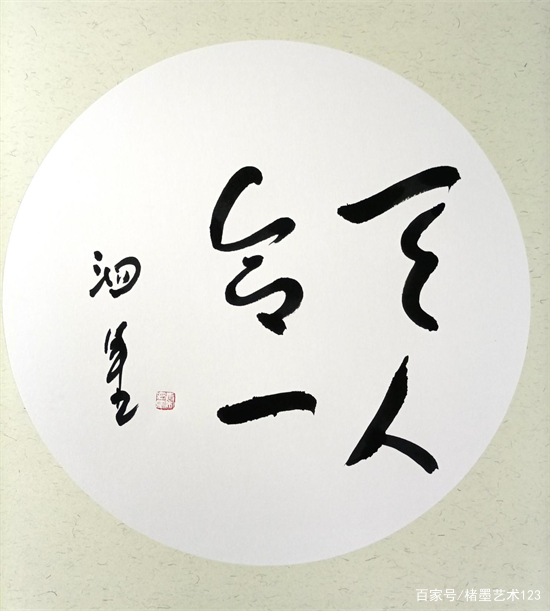 天人
合一
百家号/楮墨艺术123